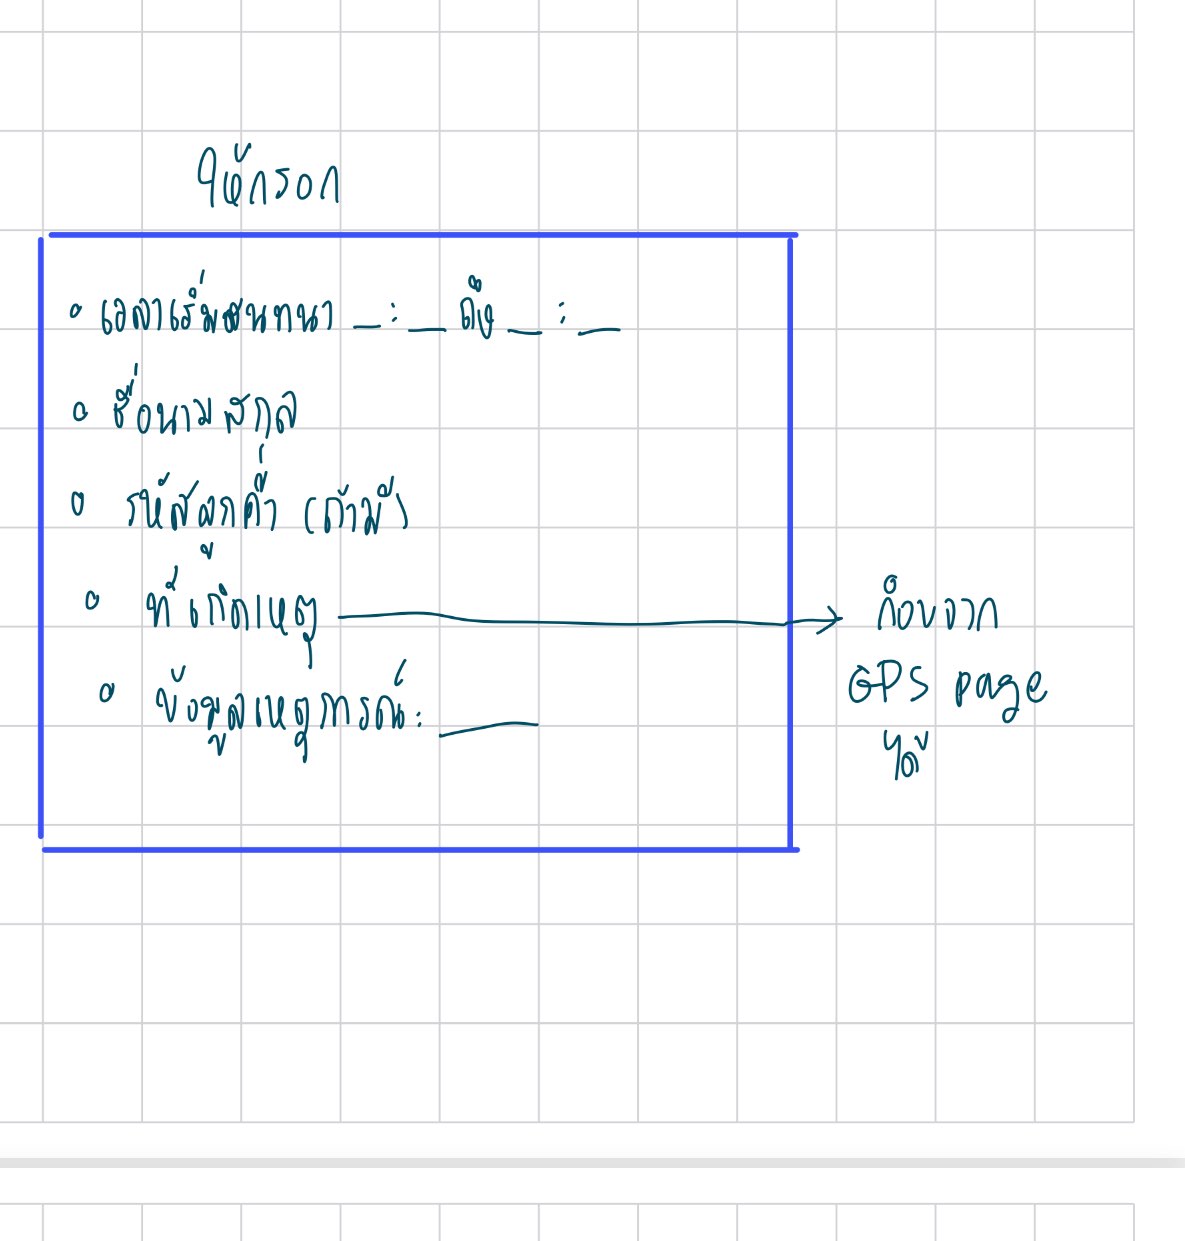 ให้กรอก
• เวลาเริ่มสนทนา _ : _ ถึง _ : _
• ชื่อนามสกุล
• รหัสลูกค้า (ถ้ามี)
• ที่เกิดเหตุ → ก๊อบจาก
GPS page
ได้
• ข้อมูลเหตุการณ์: _